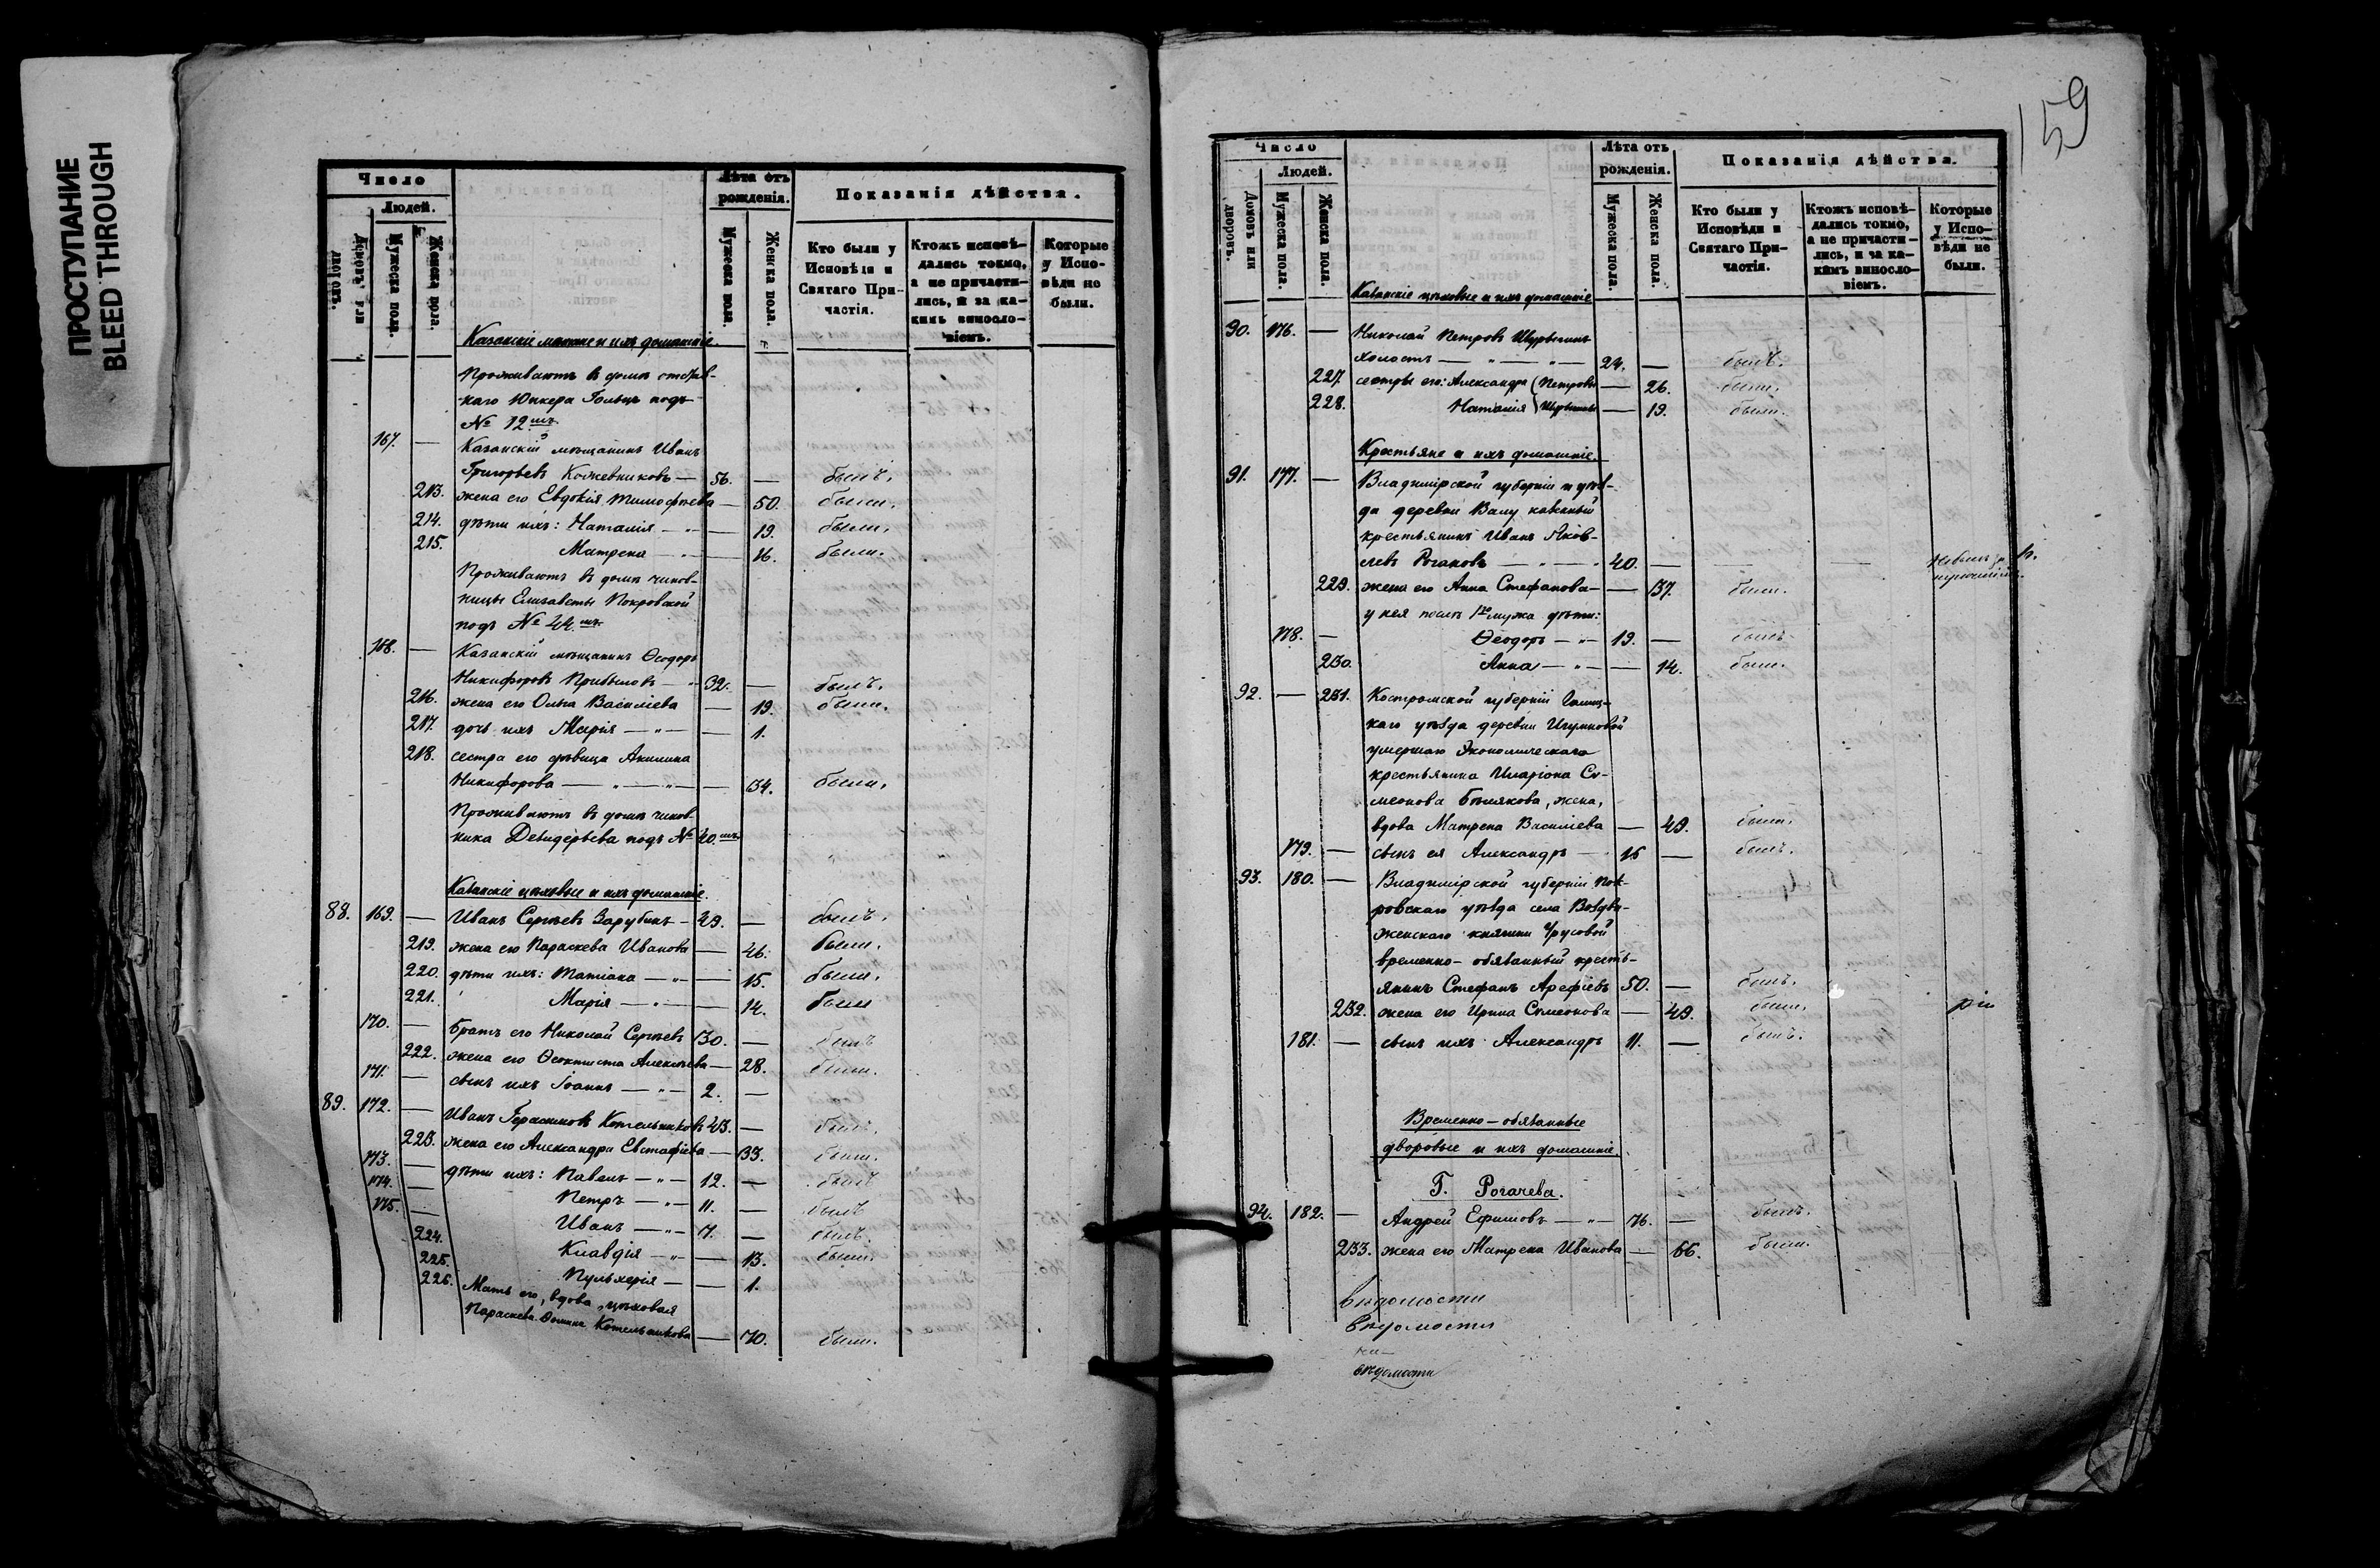 ПРОСТУПАНИЕ
BLEED THROUGH
Число
Людей.
Домовъ или дворовъ.
Мужеска пола.
Женска пола.
Лѣта отъ рожденія.
Мужеска пола.
Женска пола.
Показанія дѣйства.
Кто были у Исповѣди и Святаго Причастія.
Ктожъ исповѣдались токмо, а не причастились, и за какимъ винословіемъ.
Которые у Исповѣди не были.
Казанскіе мѣщане и ихъ домашніе.
Проживаютъ въ домѣ отстав-
наго Юнкера Гольцъ подъ
№ 12мъ
167. — Казанскій мѣщанинъ Иванъ
Григорьевъ Кожевниковъ — 56. — былъ.
213. жена его Евдокія Тимофѣева — 50. были.
214. дѣти ихъ: Наталія — „ — — 19. были.
215. Матрена — „ — 16. были.
Проживаютъ въ домѣ чинов-
ницы Елизаветы Покровской
подъ № 44мъ
168. — Казанскій мѣщанинъ Ѳеодоръ
Никифоровъ Прибыловъ — „ 32. — былъ.
216. жена его Ольга Василіева — 19. были.
217. дочь ихъ Марія — „ — — 1.
218. сестра его дѣвица Акилина
Никифорова — „ — „ — — 34. были.
Проживаютъ въ домѣ чинов-
ника Девидерьева подъ № 40мъ
Казанскіе цѣховые и ихъ домашніе.
88. 169. — Иванъ Сергѣевъ Зарубинъ — 49. — былъ.
219. жена его Параскева Иванова — 46. были.
220. дѣти ихъ: Татіана — „ — — 15. были.
221. Марія — „ — — 14. были
170. — братъ его Николай Сергѣевъ 30. — былъ
222. жена его Ѳеоктиста Алексѣева — 28. были.
171. — сынъ ихъ Іоаннъ — „ — 2. —
89. 172. — Иванъ Герасимовъ Котельниковъ 43. — былъ.
223. жена его Александра Евстафіева — 33. были.
173. — дѣти ихъ: Павелъ — „ — 12. — былъ
174. — Петръ — „ — 11. — былъ
175. — Иванъ — „ — 7. — былъ.
224. Клавдія — „ — — 13. были.
225. Пульхерія — — 1.
226. Мать его, вдова, цѣховая
Параскева Котельникова — 70. были.
159
Число
Людей.
Домовъ или дворовъ.
Мужеска пола.
Женска пола.
Лѣта отъ рожденія.
Мужеска пола.
Женска пола.
Показанія дѣйства.
Кто были у Исповѣди и Святаго Причастія.
Ктожъ исповѣдались токмо, а не причастились, и за какимъ винословіемъ.
Которые у Исповѣди не были.
Казанскіе цѣховые и ихъ домашніе
90. 176. — Николай Петровъ Шурыгинъ
холостъ — „ — „ — 24. — былъ.
227. сестры его: Александра (Петровы — 26. были.
228. Наталія — 19. были.
Крестьяне и ихъ домашніе.
91. 177. — Владимірской губерніи и уѣз-
да деревни Валу казенный
крестьянинъ Иванъ Яков-
левъ Рогановъ — „ — „ 40. — — —
229. жена его Анна Стефанова — — 37. были.
у нея послѣ 1го мужа дѣти:
178. — Ѳеодоръ — „ — 19. — былъ.
230. Анна — „ — — 14. были.
92. — 231. Костромской губерніи Галиц-
каго уѣзда деревни Игумновой
умершаго экономическаго
крестьянина Иларіона Си-
меонова Бѣлякова, жена,
вдова Матрена Василіева — 49. были.
179. — сынъ ея Александръ — 16 — былъ.
93. 180. — Владимірской губерніи Пок-
ровскаго уѣзда села Воздви-
женскаго княгини Урусовой
временно-обязанный кресть-
янинъ Стефанъ Арефіевъ 50. — былъ.
232. жена его Ирина Симеонова — 49. были.
181. — сынъ ихъ Александръ 11. — былъ.
Временно-обязанные
дворовые и ихъ домашніе.
Г. Рогачева.
94. 182. — Андрей Ефимовъ — „ — 76. — былъ.
233. жена его Матрена Иванова — 66. были.
вѣдомости
вѣдомости
вѣдомости